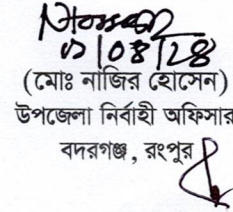 (মোঃ নাজির হোসেন)
উপজেলা নির্বাহী অফিসার
বদরগঞ্জ, রংপুর